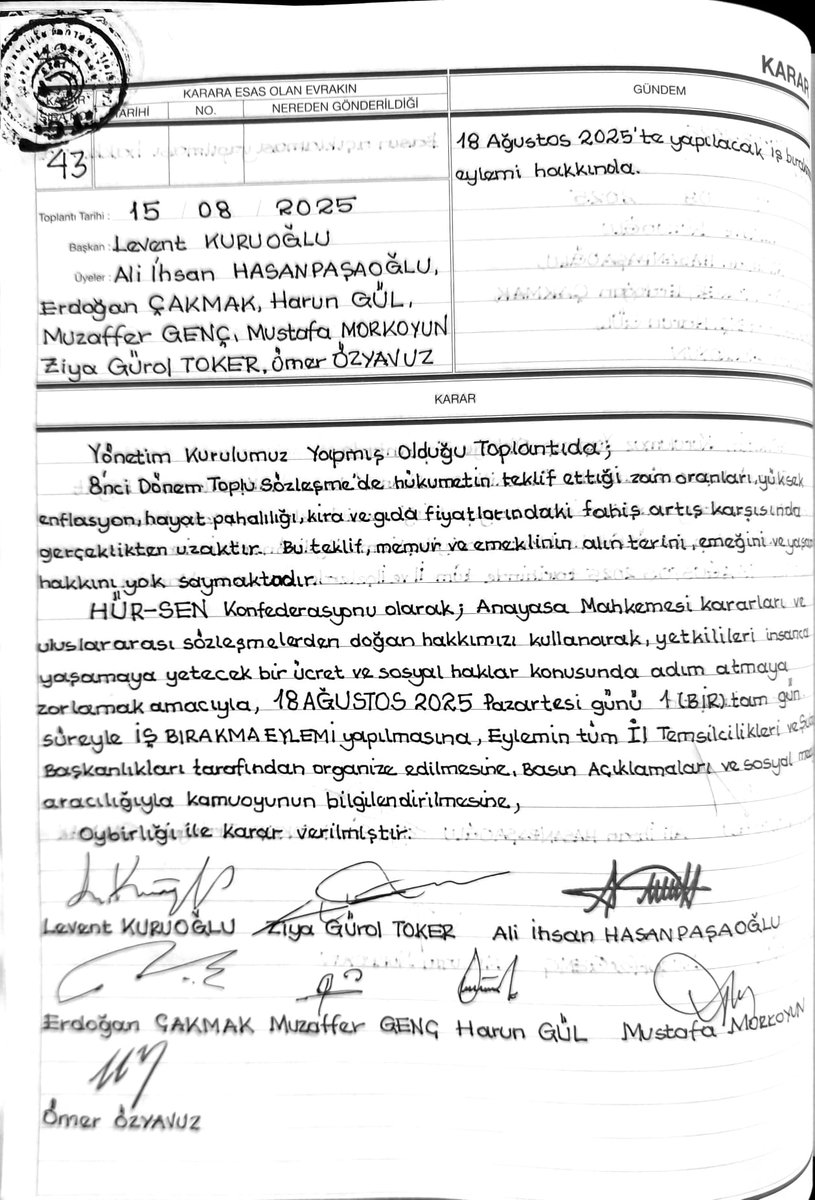 KARAR
KARARA ESAS OLAN EVRAKIN
GÜNDEM
TARİHİ NO. NEREDEN GÖNDERİLDİĞİ
43
18 Ağustos 2025'te yapılacak iş
eylemi hakkında.
Toplantı Tarihi: 15 / 08 / 2025
Başkan: Levent KURUOĞLU
Üyeler: Ali İhsan HASANPAŞAOĞLU,
Erdoğan ÇAKMAK, Harun GÜL,
Muzaffer GENÇ, Mustafa MORKOYUN
Ziya Gürol TOKER, Ömer ÖZYAVUZ
KARAR
Yönetim Kurulumuz Yapmış Olduğu Toplantıda;
8nci Dönem Toplu Sözleşme'de hükumetin teklif ettiği zam oranları, yüksek
enflasyon, hayat pahalılığı, kira ve gıda fiyatlarındaki fahiş artış karşısında
gerçeklikten uzaktır. Bu teklif, memur ve emeklinin alın terini, emeğini ve
hakkını yok saymaktadır.
HÜR-SEN Konfederasyonu olarak; Anayasa Mahkemesi kararları ve
uluslararası sözleşmelerden doğan hakkımızı kullanarak, yetkilileri insanca
yaşamaya yetecek bir ücret ve sosyal haklar konusunda adım atmaya
zorlamak amacıyla, 18 AĞUSTOS 2025 Pazartesi günü 1 (BİR) tam gün
süreyle İŞ BIRAKMA EYLEMİ yapılmasına, Eylemin tüm İl Temsilcilikleri ve
Başkanlıkları tarafından organize edilmesine, Basın Açıklamaları ve sosyal
aracılığıyla kamuoyunun bilgilendirilmesine,
Oybirliği ile karar verilmiştir.
Levent KURUOĞLU Ziya Gürol TOKER Ali İhsan HASANPAŞAOĞLU
Erdoğan ÇAKMAK Muzaffer GENÇ Harun GÜL Mustafa MORKOYUN
Ömer ÖZYAVUZ